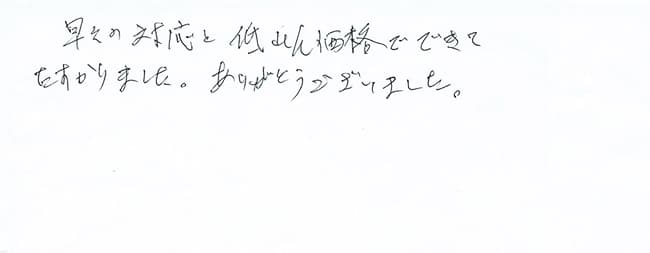 早々の対応と低れん価格でできて
たすかりました。ありがとうございました。